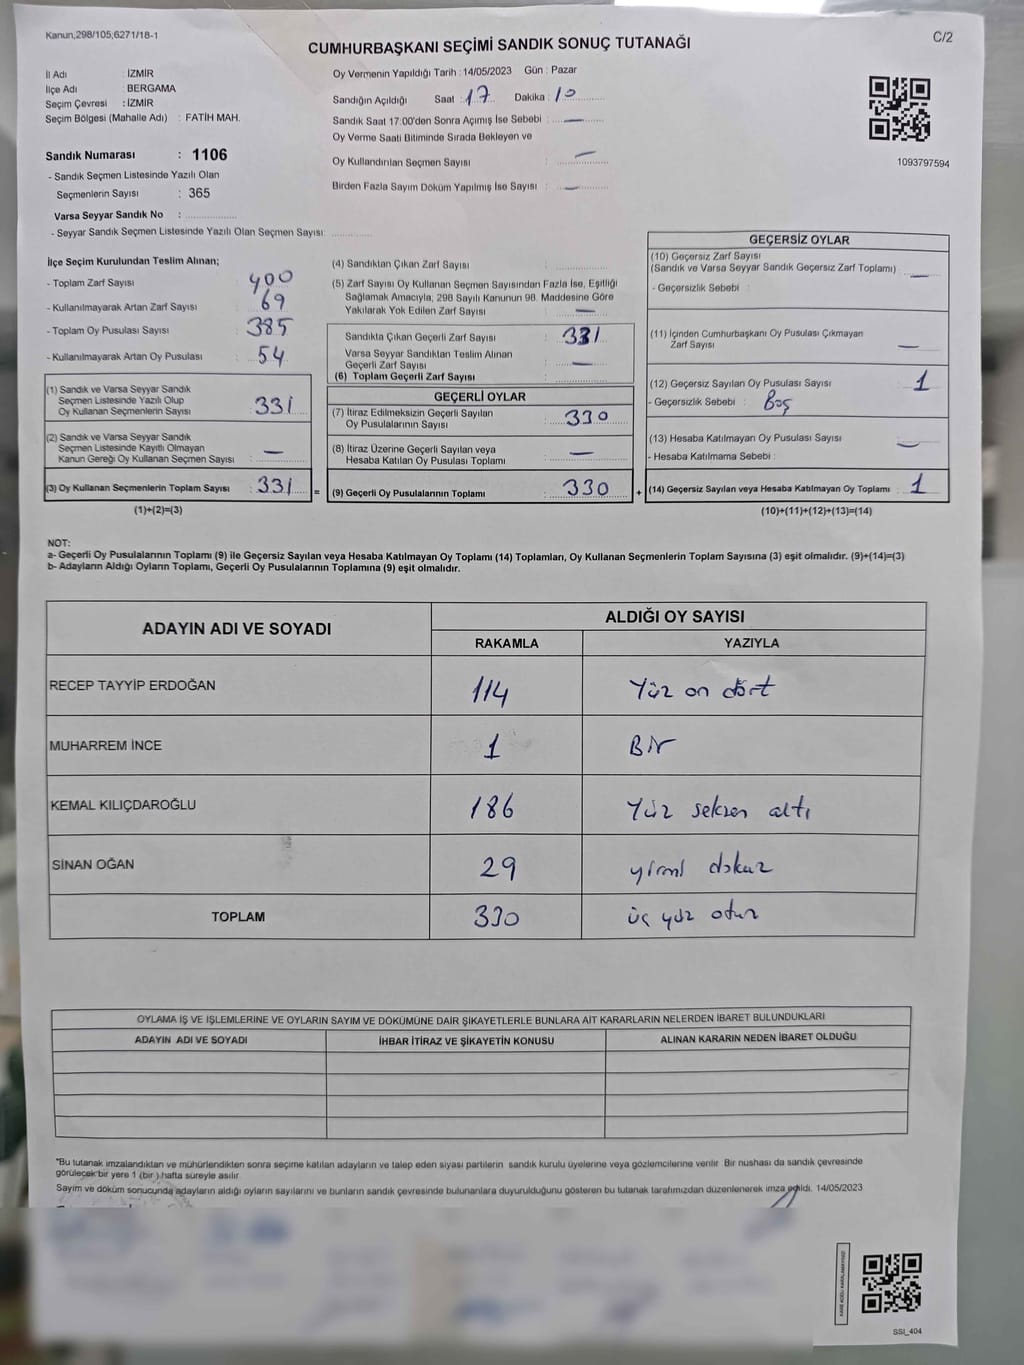 Kanun,298/105,6271/18-1
C/2
CUMHURBAŞKANI SEÇİMİ SANDIK SONUÇ TUTANAĞI
İl Adı : İZMİR
İlçe Adı : BERGAMA
Seçim Çevresi : İZMİR
Seçim Bölgesi (Mahalle Adı) : FATİH MAH.
Sandık Numarası : 1106
- Sandık Seçmen Listesinde Yazılı Olan
Seçmenlerin Sayısı : 365
Varsa Seyyar Sandık No :
- Seyyar Sandık Seçmen Listesinde Yazılı Olan Seçmen Sayısı:
Oy Vermenin Yapıldığı Tarih : 14/05/2023 Gün : Pazar
Sandığın Açıldığı Saat : 17 Dakika : 10
Sandık Saat 17:00'den Sonra Açımış İse Sebebi : —
Oy Verme Saati Bitiminde Sırada Bekleyen ve
Oy Kullandırılan Seçmen Sayısı : —
Birden Fazla Sayım Döküm Yapılmış İse Sayısı : —
1093797594
İlçe Seçim Kurulundan Teslim Alınan;
- Toplam Zarf Sayısı : 400
- Kullanılmayarak Artan Zarf Sayısı : 69
- Toplam Oy Pusulası Sayısı : 385
- Kullanılmayarak Artan Oy Pusulası : 54
(1) Sandık ve Varsa Seyyar Sandık
Seçmen Listesinde Yazılı Olup
Oy Kullanan Seçmenlerin Sayısı : 331
(2) Sandık ve Varsa Seyyar Sandık
Seçmen Listesinde Kayıtlı Olmayan
Kanun Gereği Oy Kullanan Seçmen Sayısı : —
(3) Oy Kullanan Seçmenlerin Toplam Sayısı : 331 =
(1)+(2)=(3)
(4) Sandıktan Çıkan Zarf Sayısı :
(5) Zarf Sayısı Oy Kullanan Seçmen Sayısından Fazla İse, Eşitliği
Sağlamak Amacıyla, 298 Sayılı Kanunun 98. Maddesine Göre
Yakılarak Yok Edilen Zarf Sayısı : —
Sandıkta Çıkan Geçerli Zarf Sayısı : 331
Varsa Seyyar Sandıktan Teslim Alınan
Geçerli Zarf Sayısı : —
(6) Toplam Geçerli Zarf Sayısı :
GEÇERLİ OYLAR
(7) İtiraz Edilmeksizin Geçerli Sayılan
Oy Pusulalarının Sayısı : 330
(8) İtiraz Üzerine Geçerli Sayılan veya
Hesaba Katılan Oy Pusulası Toplamı : —
(9) Geçerli Oy Pusulalarının Toplamı : 330 +
GEÇERSİZ OYLAR
(10) Geçersiz Zarf Sayısı
(Sandık ve Varsa Seyyar Sandık Geçersiz Zarf Toplamı) : —
- Geçersizlik Sebebi :
(11) İçinden Cumhurbaşkanı Oy Pusulası Çıkmayan
Zarf Sayısı : —
(12) Geçersiz Sayılan Oy Pusulası Sayısı : 1
- Geçersizlik Sebebi : Boş
(13) Hesaba Katılmayan Oy Pusulası Sayısı : —
- Hesaba Katılmama Sebebi :
(14) Geçersiz Sayılan veya Hesaba Katılmayan Oy Toplamı : 1
(10)+(11)+(12)+(13)=(14)
NOT:
a- Geçerli Oy Pusulalarının Toplamı (9) ile Geçersiz Sayılan veya Hesaba Katılmayan Oy Toplamı (14) Toplamları, Oy Kullanan Seçmenlerin Toplam Sayısına (3) eşit olmalıdır. (9)+(14)=(3)
b- Adayların Aldığı Oyların Toplamı, Geçerli Oy Pusulalarının Toplamına (9) eşit olmalıdır.
ADAYIN ADI VE SOYADI
ALDIĞI OY SAYISI
RAKAMLA YAZIYLA
RECEP TAYYİP ERDOĞAN 114 Yüz on dört
MUHARREM İNCE 1 Bir
KEMAL KILIÇDAROĞLU 186 Yüz seksen altı
SİNAN OĞAN 29 yirmi dokuz
TOPLAM 330 üç yüz otuz
OYLAMA İŞ VE İŞLEMLERİNE VE OYLARIN SAYIM VE DÖKÜMÜNE DAİR ŞİKAYETLERLE BUNLARA AİT KARARLARIN NELERDEN İBARET BULUNDUKLARI
ADAYIN ADI VE SOYADI İHBAR İTİRAZ VE ŞİKAYETİN KONUSU ALINAN KARARIN NEDEN İBARET OLDUĞU
*Bu tutanak imzalandıktan ve mühürlendikten sonra seçime katılan adayların ve talep eden siyası partilerin sandık kurulu üyelerine veya gözlemcilerine verilir. Bir nushası da sandık çevresinde
görülecek bir yere 1 (bir) hafta süreyle asılır.
Sayım ve döküm sonucunda adayların aldığı oyların sayılarını ve bunların sandık çevresinde bulunanlara duyurulduğunu gösteren bu tutanak tarafımızdan düzenlenerek imza edildi. 14/05/2023
SSI_404